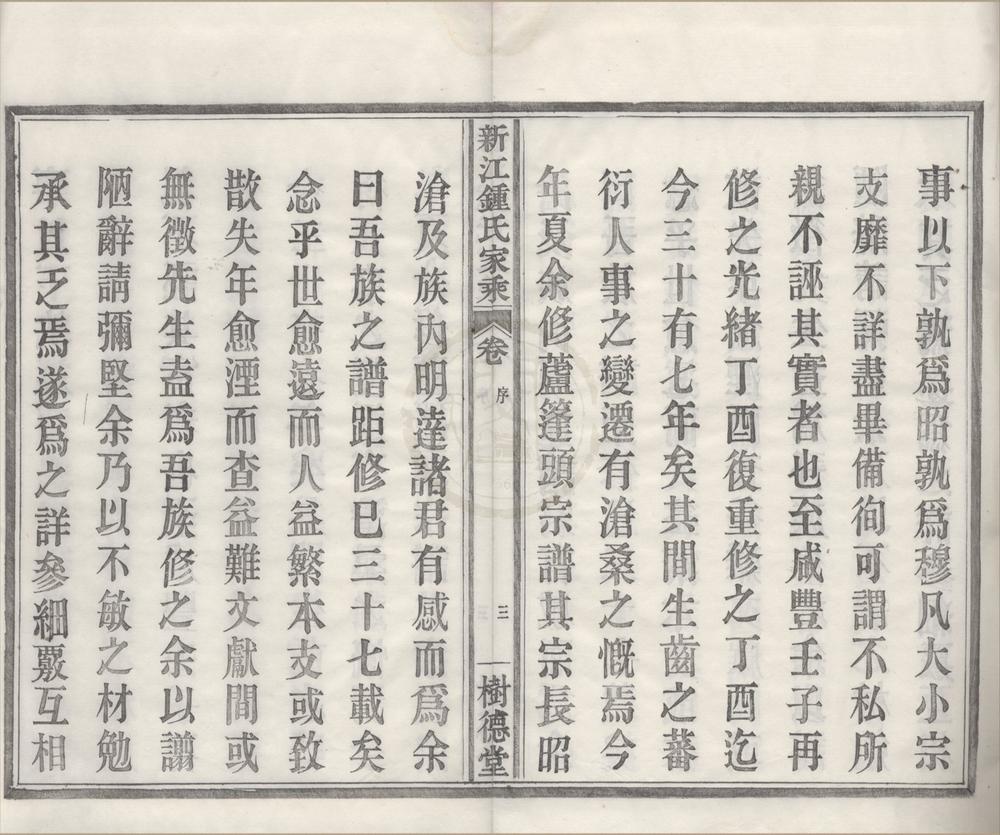 事以下孰爲昭孰爲穆凡大小宗
支靡不詳盡畢備徇可謂不私所
親不誣其實者也至咸豐壬子再
修之光緒丁酉復重修之丁酉迄
今三十有七年矣其間生齒之蕃
衍人事之變遷有滄桑之慨焉今
年夏余修蘆篷頭宗譜其宗長昭
新江鍾氏家乘
卷
序
三
樹德堂
滄及族內明達諸君有感而爲余
曰吾族之譜距修已三十七載矣
念乎世愈遠而人益繁本支或致
散失年愈湮而查益難文獻間或
無徵先生盍爲吾族修之余以譾
陋辭請彌堅余乃以不敏之材勉
承其乏焉遂爲之詳參細覈互相